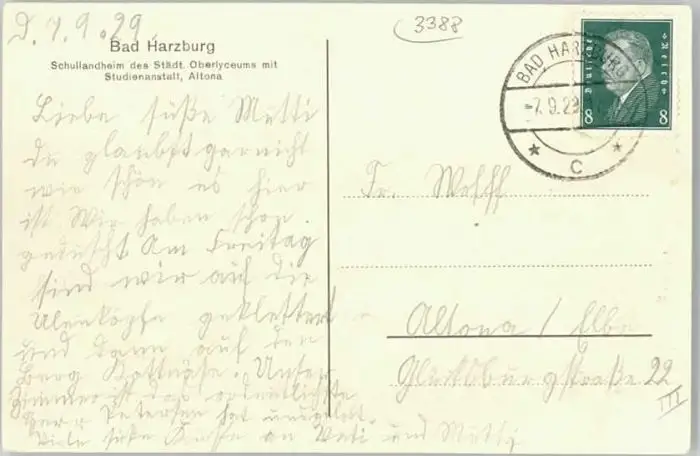 D. 7.9.29.
3388
Bad Harzburg
Schullandheim des Städt. Oberlyceums mit
Studienanstalt, Altona
Liebe süße Mutti
du glaubst gar nicht
wie schön es hier
ist. Wir haben schon
geduscht Am Freitag
sind wir auf die
Ulenköpfe geklettert
und dann auf den
Berg Unser
Zimmer ist das ordentlichste
Herr Petersen hat
Viele süße Küsse an Vati und Mutti
BAD HARZBURG
-7.9.29
* C *
Deutsches Reich
8 8
Fr. Wolff
Altona / Elbe
Glücksburgstraße 22
III